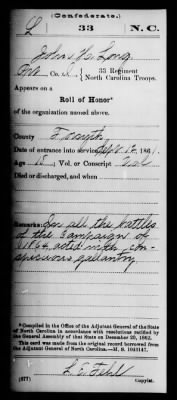 (Confederate.)
L 33 N.C.
John H. Long
Pvt Co. A, 33 Regiment
North Carolina Troops.
Appears on a
Roll of Honor*
of the organization named above.
County Forsyth
Date of entrance into service Sept. 12, 1861.
Age, Vol. or Conscript Vol
Died or discharged, and when
Remarks: In all the battles
of the campaign of
1864, acted with con-
spicuous gallantry.
*Compiled in the Office of the Adjutant General of the State
of North Carolina in accordance with resolutions ratified by
the General Assembly of that State on December 20, 1862.
This card was made from the original record borrowed from
the Adjutant General of North Carolina.—M. S.
L. E.
(677) Copyist.